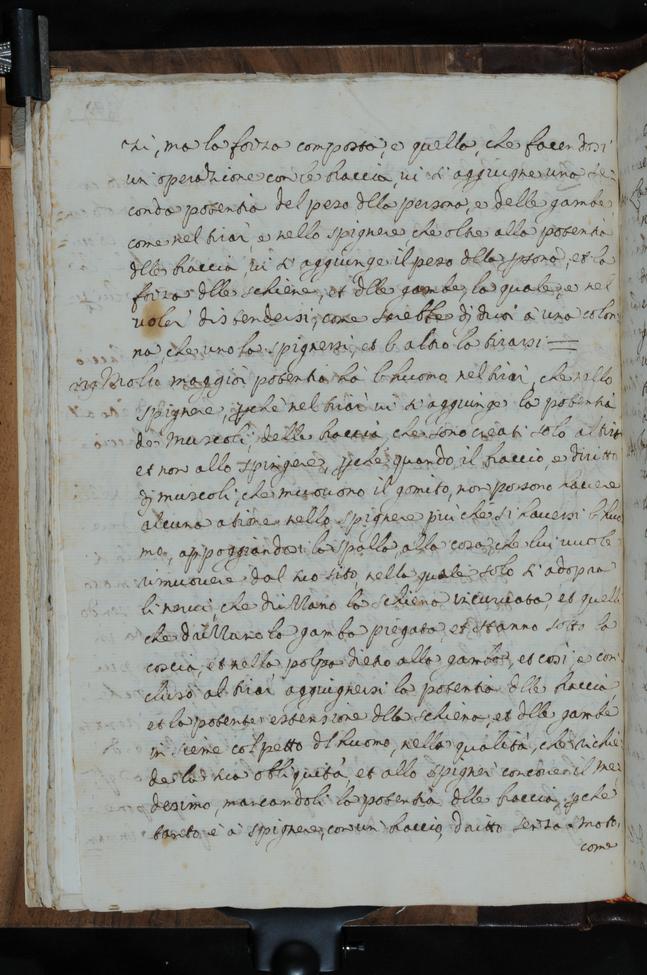 zi, ma la forza composta, e quella, che facendosi
un operazione con le braccia, vi s'aggiugne una se
conda potentia del peso della persona, e delle gambe
come nel tirar, e nello spignere che oltre alla potentia
dlle braccia, vi s'aggiunge il peso dlla psona, et la
forza dlle schiene, et dlle gambe, la quale, e nel
voler distendersi, come sarebbe di duoi à una colon
na, che uno la spignessi, et l'altro la tirassi
Molto maggior potentia hà l'huomo nel tirar, che nello
spignere, pche nel tirar vi s'aggiunge la potentia
de' muscoli, delle braccia, che sono creati solo al tirar
et non allo spingere, pche quando il braccio, e diritto
di muscoli, che muovono il gomito, non possono havere
alcuna atione nello spignere piu che si havessi l'huo
mo, appoggiandosi la spalla alla cosa, che lui vuole
rimuovere dal suo sito, nella quale solo s'adopra
li nervi, che drizzano la schiena incurvata, et quelli
che drizzano la gamba piegata, et stanno sotto la
coscia, et nella polpa dietro alla gamba, et cosi, e con
cluso al tirar aggiugnersi la potentia dlle braccia
et la potente estensione dlla schiena, et dlle gambe
insieme col petto dl huomo, nella qualità, che richie
de la sua obliquità, et allo spigner concorre il me
desimo, mancandoli la potentia dlle braccia, pche
tanto è à spignere, con un braccio, dritto senza moto,
come